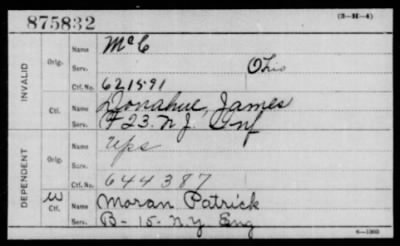 875832
(3-H-4)
INVALID
Orig.
Name McC
Serv. Ohio
Ctf. No. 621591
Ctf.
Name Donahue, James
Serv. F 23. N J. Inf
DEPENDENT
Orig.
Name Ups
Serv.
Ctf. No. 644387
W
Ctf.
Name Moran Patrick
Serv. B- 15- N.Y Eng